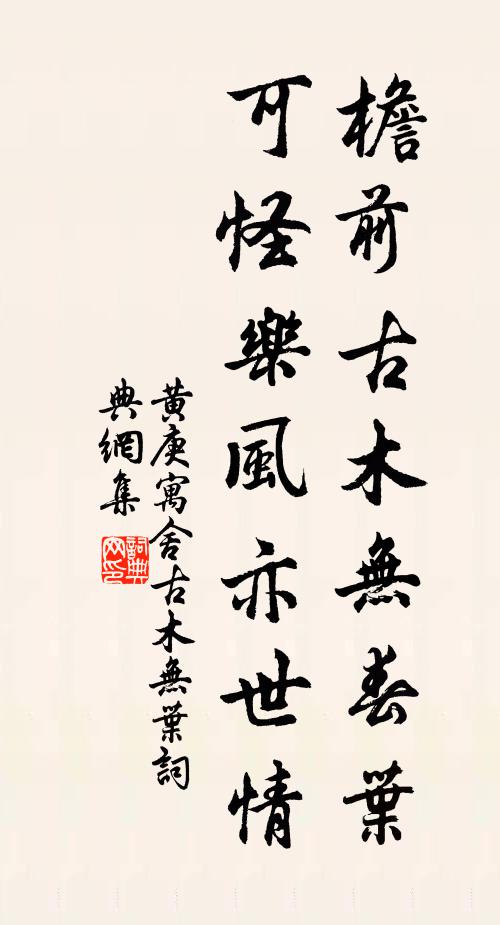 檐前古木無春葉
可怪樂風亦世情
黄庚寓舍古木無葉詞
典網集
詞典網印